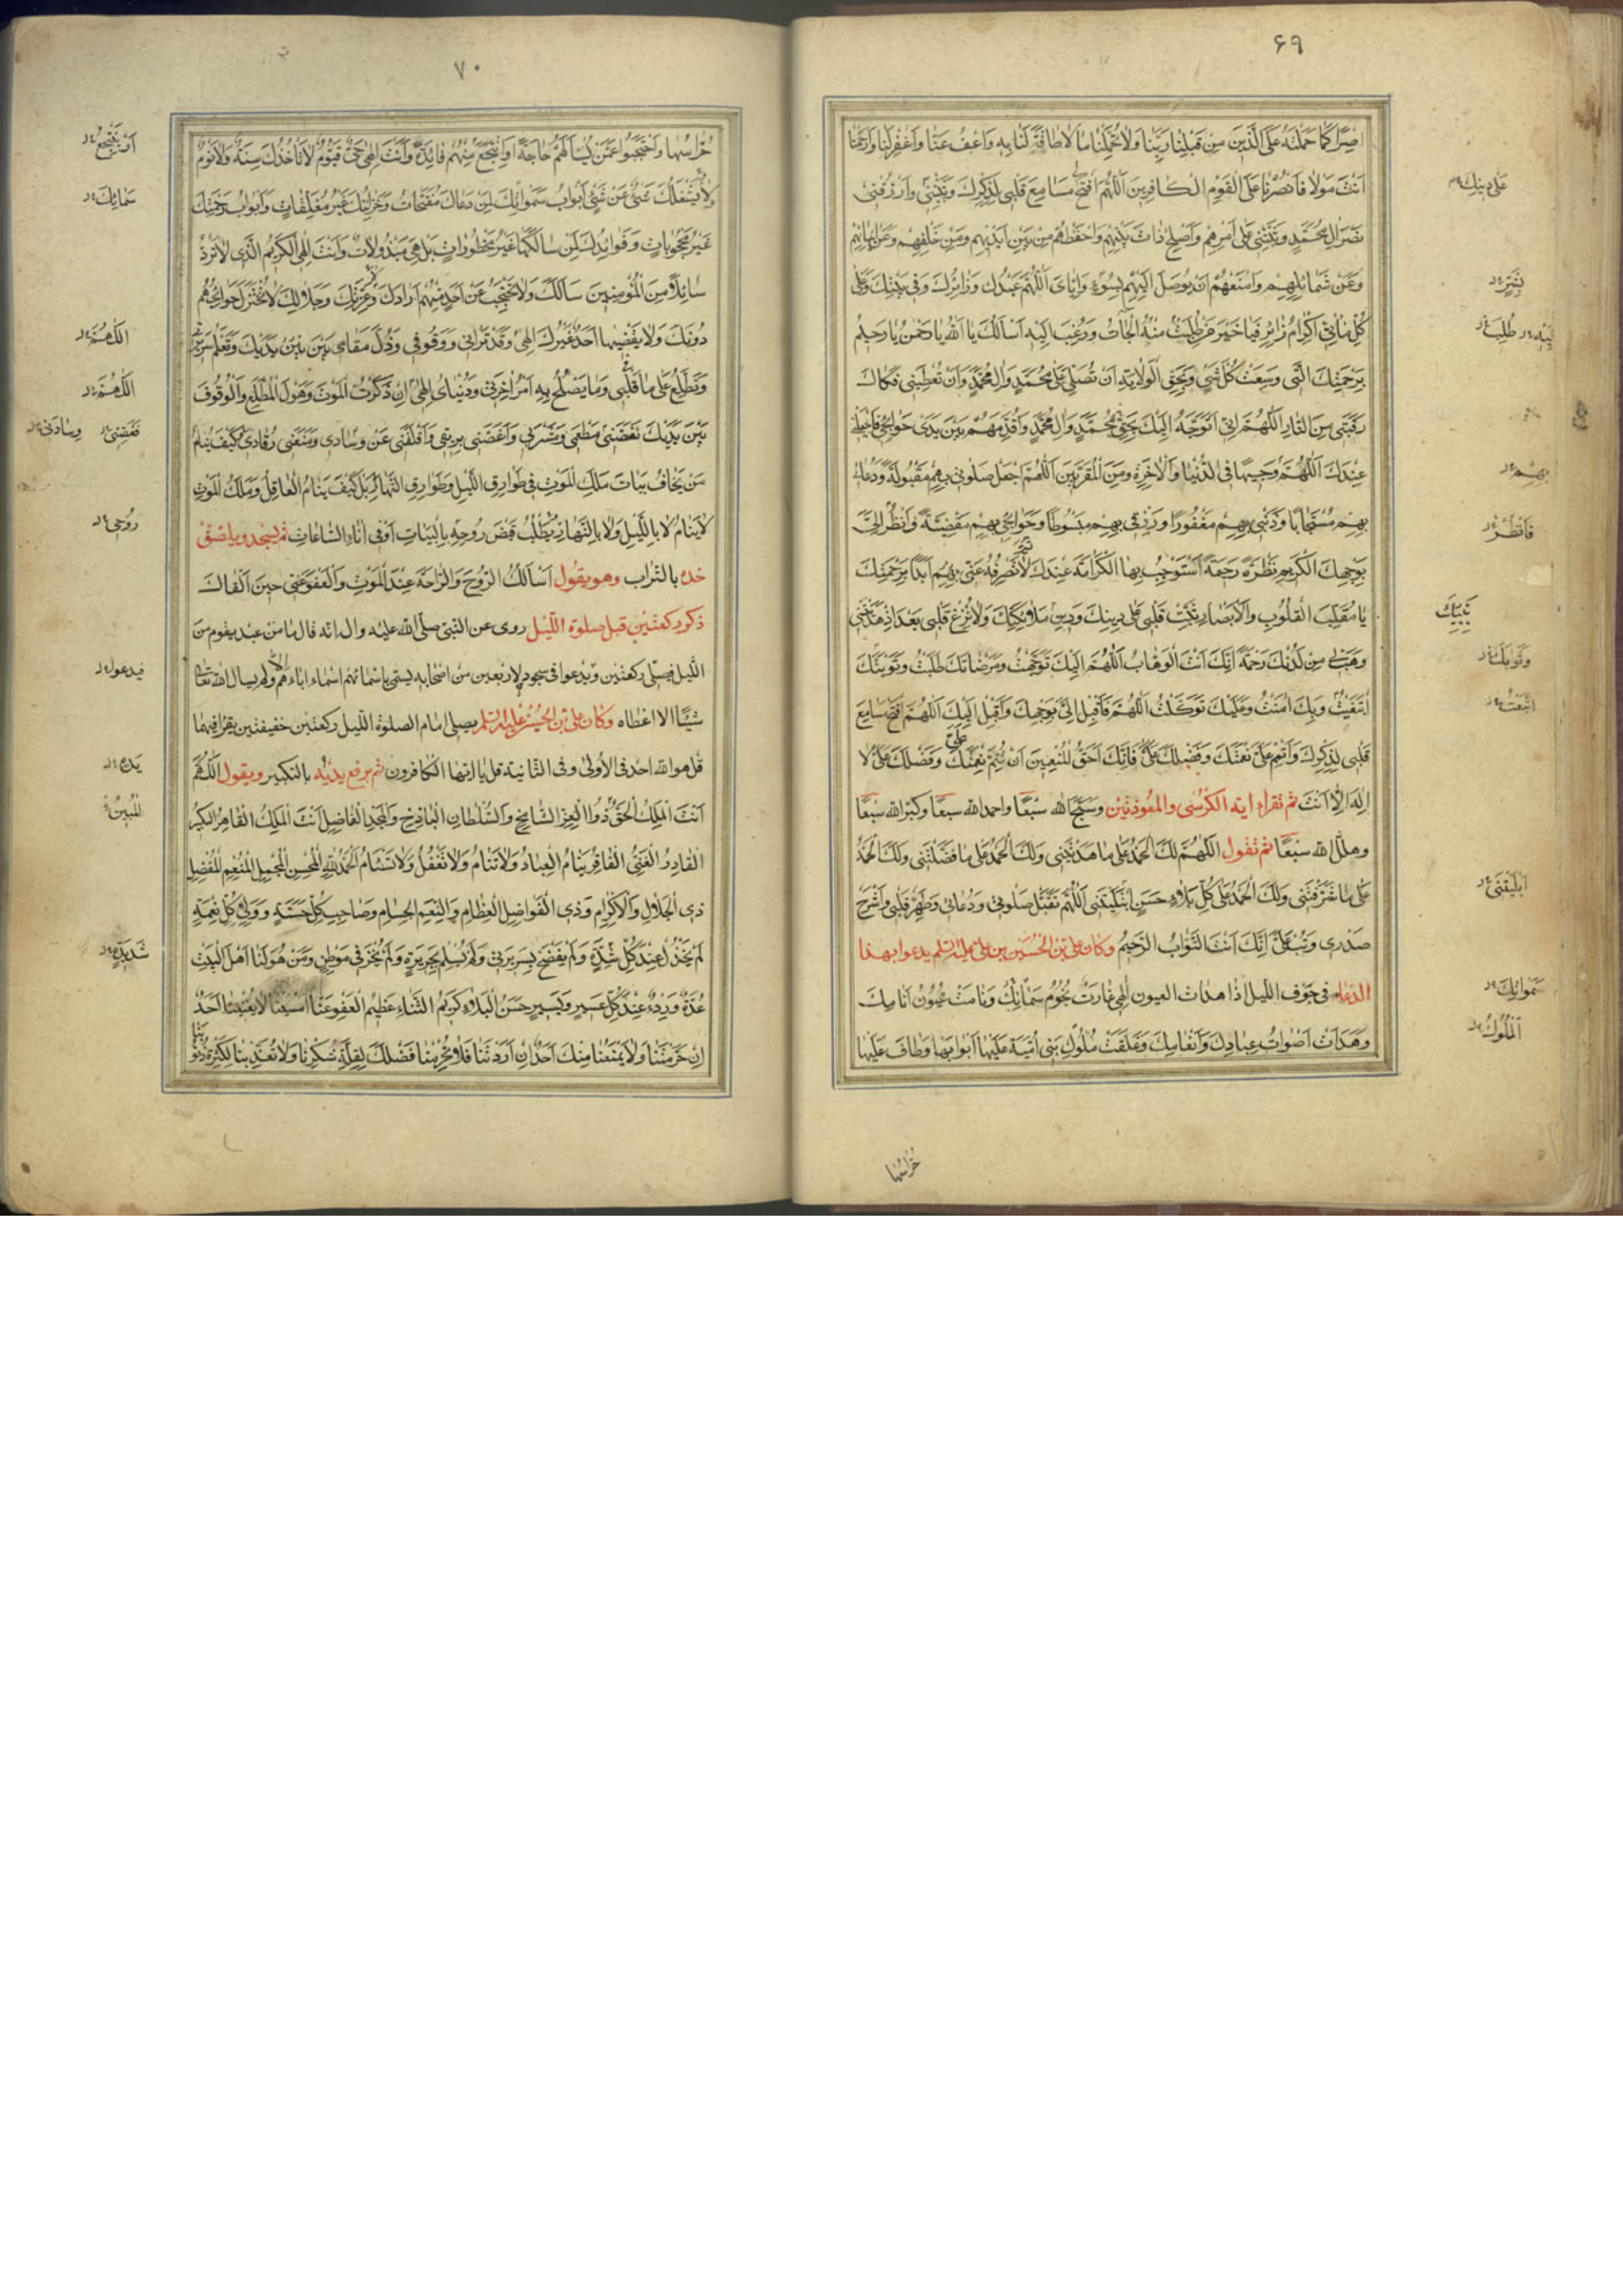 ۶۹
اِصْرًا كَمَا حَمَلْتَهُ عَلَى الَّذِينَ مِنْ قَبْلِنَا رَبَّنَا وَلَا تُحَمِّلْنَا مَا لَا طَاقَةَ لَنَا بِهِ وَاعْفُ عَنَّا وَاغْفِرْ لَنَا وَارْحَمْنَا
اَنْتَ مَوْلَانَا فَانْصُرْنَا عَلَى الْقَوْمِ الْكَافِرِينَ اَللّٰهُمَّ افْتَحْ مَسَامِعَ قَلْبِي لِذِكْرِكَ وَثَبِّتْنِي وَارْزُقْنِي
نَصْرَ الِ مُحَمَّدٍ وَثَبِّتْنِي عَلَى اَمْرِهِمْ وَاَصْلِحْ ذَاتَ بَيْنِهِمْ وَاحْفَظْهُمْ مِنْ بَيْنِ اَيْدِيهِمْ وَمِنْ خَلْفِهِمْ وَعَنْ اَيْمَانِهِمْ
وَعَنْ شَمَائِلِهِمْ وَامْنَعْهُمْ اَنْ يُوصَلَ اِلَيْهِمْ بِسُوءٍ وَاِيَّايَ اَللّٰهُمَّ عَبْدُكَ وَزَائِرُكَ وَفِي بَيْتِكَ وَعَلَى
كُلِّ مَأْتِيٍّ اِكْرَامُ زَائِرِهِ فَيَا خَيْرَ مَنْ طُلِبَتْ مِنْهُ الْحَاجَاتُ وَرُغِبَ اِلَيْهِ اَسْاَلُكَ يَا اَللهُ يَا رَحْمٰنُ يَا رَحِيمُ
بِرَحْمَتِكَ الَّتِي وَسِعَتْ كُلَّ شَيْءٍ وَبِحَقِّ الْوِلَايَةِ اَنْ تُصَلِّيَ عَلَى مُحَمَّدٍ وَالِ مُحَمَّدٍ وَاَنْ تُعْطِيَنِي فَكَاكَ
رَقَبَتِي مِنَ النَّارِ اَللّٰهُمَّ اِنِّي اَتَوَجَّهُ اِلَيْكَ بِحَقِّ مُحَمَّدٍ وَالِ مُحَمَّدٍ وَاُقَدِّمُهُمْ بَيْنَ يَدَيْ حَوَائِجِي فَاجْعَلْنِي
عِنْدَكَ اَللّٰهُمَّ وَجِيهًا فِي الدُّنْيَا وَالْاٰخِرَةِ وَمِنَ الْمُقَرَّبِينَ اَللّٰهُمَّ اجْعَلْ صَلٰوتِي بِهِمْ مَقْبُولَةً وَدُعَائِي
بِهِمْ مُسْتَجَابًا وَذَنْبِي بِهِمْ مَغْفُورًا وَرِزْقِي بِهِمْ مَبْسُوطًا وَحَوَائِجِي بِهِمْ مَقْضِيَّةً وَانْظُرْ اِلَيَّ
بِوَجْهِكَ الْكَرِيمِ نَظْرَةً رَحِيمَةً اَسْتَوْجِبُ بِهَا الْكَرَامَةَ عِنْدَكَ لَا تَصْرِفْهُ عَنِّي اَبَدًا بِرَحْمَتِكَ
يَا مُقَلِّبَ الْقُلُوبِ وَالْاَبْصَارِ ثَبِّتْ قَلْبِي عَلَى دِينِكَ وَدِينِ مَلَائِكَتِكَ وَلَا تُزِغْ قَلْبِي بَعْدَ اِذْ هَدَيْتَنِي
وَهَبْ لِي مِنْ لَدُنْكَ رَحْمَةً اِنَّكَ اَنْتَ الْوَهَّابُ اَللّٰهُمَّ اِلَيْكَ تَوَجَّهْتُ وَمَرْضَاتَكَ طَلَبْتُ وَثَوَابَكَ
ابْتَغَيْتُ وَبِكَ اٰمَنْتُ وَعَلَيْكَ تَوَكَّلْتُ اَللّٰهُمَّ فَاَقْبِلْ اِلَيَّ بِوَجْهِكَ وَاَقْبِلْ اِلَيْكَ اَللّٰهُمَّ افْتَحْ مَسَامِعَ
قَلْبِي لِذِكْرِكَ وَاَتْمِمْ عَلَيَّ نِعْمَتَكَ وَفَضْلَكَ عَلَيَّ فَاِنَّكَ اَحَقُّ الْمُنْعِمِينَ اَنْ تُتِمَّ نِعْمَتَكَ وَفَضْلَكَ عَلَيَّ لَا
اِلٰهَ اِلَّا اَنْتَ ثم تقراء اية الكرسى والمعوذتين وسبح الله سبعًا واحمد الله سبعًا وكبر الله سبعًا
وهلل الله سبعًا ثم تقول اَللّٰهُمَّ لَكَ الْحَمْدُ عَلَى مَا هَدَيْتَنِي وَلَكَ الْحَمْدُ عَلَى مَا فَضَّلْتَنِي وَلَكَ الْحَمْدُ
عَلَى مَا شَرَّفْتَنِي وَلَكَ الْحَمْدُ عَلَى كُلِّ بَلَاءٍ حَسَنٍ ابْتَلَيْتَنِي اَللّٰهُمَّ تَقَبَّلْ صَلٰوتِي وَدُعَائِي وَطَهِّرْ قَلْبِي وَاشْرَحْ
صَدْرِي وَتُبْ عَلَيَّ اِنَّكَ اَنْتَ التَّوَّابُ الرَّحِيمُ وكان على بن الحسين بن على عليه السلم يدعوا بهذا
الدعاء فى جوف الليل اذا هدات العيون اِلٰهِي غَارَتْ نُجُومُ سَمَائِكَ وَنَامَتْ عُيُونُ اَنَامِكَ
وَهَدَاَتْ اَصْوَاتُ عِبَادِكَ وَاَنْعَامِكَ وَغَلَّقَتْ مُلُوكُ بَنِي اُمَيَّةَ عَلَيْهَا اَبْوَابَهَا وَطَافَ عَلَيْهَا
حُرَّاسُهَا
على دينك
طلبت
بهم
فانظر
نبيك
وثوابك
ابليتنى
سمواتك
الملوك
۷۰
حُرَّاسُهَا وَاحْتَجَبُوا عَمَّنْ يَسْاَلُهُمْ حَاجَةً اَوْ يَنْتَجِعُ مِنْهُمْ فَائِدَةً وَاَنْتَ اِلٰهِي حَيٌّ قَيُّومٌ لَا تَاْخُذُكَ سِنَةٌ وَلَا نَوْمٌ
وَلَا يَشْغَلُكَ شَيْءٌ عَنْ شَيْءٍ اَبْوَابُ سَمٰوَاتِكَ لِمَنْ دَعَاكَ مُفَتَّحَاتٌ وَخَزَائِنُكَ غَيْرُ مُغَلَّقَاتٍ وَاَبْوَابُ رَحْمَتِكَ
غَيْرُ مَحْجُوبَاتٍ وَفَوَائِدُكَ لِمَنْ سَاَلَكَهَا غَيْرُ مَحْظُورَاتٍ بَلْ هِيَ مَبْذُولَاتٌ وَاَنْتَ اِلٰهِي الْكَرِيمُ الَّذِي لَا تَرُدُّ
سَائِلًا مِنَ الْمُؤْمِنِينَ سَاَلَكَ وَلَا تَحْتَجِبُ عَنْ اَحَدٍ مِنْهُمْ اَرَادَكَ وَعِزَّتِكَ وَجَلَالِكَ لَا تُخْتَزَلُ حَوَائِجُهُمْ
دُونَكَ وَلَا يَقْضِيهَا اَحَدٌ غَيْرُكَ اِلٰهِي وَقَدْ تَرَانِي وَوُقُوفِي وَذُلَّ مَقَامِي بَيْنَ يَدَيْكَ وَتَعْلَمُ سَرِيرَتِي
وَتَطَّلِعُ عَلَى مَا فِي قَلْبِي وَمَا يَصْلُحُ بِهِ اَمْرُ اٰخِرَتِي وَدُنْيَايَ اِلٰهِي اِنْ ذَكَرْتُ الْمَوْتَ وَهَوْلَ الْمُطَّلَعِ وَالْوُقُوفَ
بَيْنَ يَدَيْكَ نَغَّصَنِي مَطْعَمِي وَمَشْرَبِي وَاَغَصَّنِي بِرِيقِي وَاَقْلَقَنِي عَنْ وِسَادِي وَمَنَعَنِي رُقَادِي كَيْفَ يَنَامُ
مَنْ يَخَافُ بَيَاتَ مَلَكِ الْمَوْتِ فِي طَوَارِقِ اللَّيْلِ وَطَوَارِقِ النَّهَارِ بَلْ كَيْفَ يَنَامُ الْعَاقِلُ وَمَلَكُ الْمَوْتِ
لَا يَنَامُ لَا بِاللَّيْلِ وَلَا بِالنَّهَارِ يَطْلُبُ قَبْضَ رُوحِهِ بِالْبَيَاتِ اَوْ فِي اٰنَاءِ السَّاعَاتِ ثم يسجد ويلصق
خده بالتراب وهو يقول اَسْاَلُكَ الرَّوْحَ وَالرَّاحَةَ عِنْدَ الْمَوْتِ وَالْعَفْوَ عَنِّي حِينَ اَلْقَاكَ
ذكر ركعتين قبل صلوة الليل روى عن النبى صلى الله عليه واله انه قال ما من عبد يقوم من
الليل فيصلى ركعتين ويدعوا فى سجوده لاربعين من اصحابه يسمى باسمائهم اسماء ابائهم ولم يسال الله تعالى
شيئًا الا اعطاه وكان على بن الحسين عليه السلم يصلى امام الصلوة الليل ركعتين خفيفتين يقرا فيهما
قل هو الله احد فى الاولى وفى الثانية قل يا ايها الكافرون ثم يرفع يديه بالتكبير ويقول اللهم
اَنْتَ الْمَلِكُ الْحَقُّ ذُو الْعِزِّ الشَّامِخِ وَالسُّلْطَانِ الْبَاذِخِ وَالْمَجْدِ الْفَاضِلِ اَنْتَ الْمَلِكُ الْقَاهِرُ الْكَبِيرُ
الْقَادِرُ الْغَنِيُّ الْفَاخِرُ يَنَامُ الْعِبَادُ وَلَا تَنَامُ وَلَا تَغْفُلُ وَلَا تَسْاَمُ الْحَمْدُ لِلّٰهِ الْمُحْسِنِ الْمُجْمِلِ الْمُنْعِمِ الْمُفْضِلِ
ذِي الْجَلَالِ وَالْاِكْرَامِ وَذِي الْفَوَاضِلِ الْعِظَامِ وَالنِّعَمِ الْجِسَامِ وَصَاحِبِ كُلِّ حَسَنَةٍ وَوَلِيِّ كُلِّ نِعْمَةٍ
لَمْ يَخْذُلْ عِنْدَ كُلِّ شِدَّةٍ وَلَمْ يَفْضَحْ بِسَرِيرَةٍ وَلَمْ يُسْلِمْ بِجَرِيرَةٍ وَلَمْ يُخْزِ فِي مَوْطِنٍ وَمَنْ هُوَ لَنَا اَهْلَ الْبَيْتِ
عُدَّةٌ وَرِدْءٌ عِنْدَ كُلِّ عَسِيرٍ وَيَسِيرٍ حَسَنُ الْبَلَاءِ كَرِيمُ الثَّنَاءِ عَظِيمُ الْعَفْوِ عَنَّا اَمْسَيْنَا لَا يُغْنِينَا اَحَدٌ
اِنْ حَرَمْتَنَا وَلَا يَمْنَعُنَا مِنْكَ اَحَدٌ اِنْ اَرَدْتَنَا فَلَا تَحْرِمْنَا فَضْلَكَ لِقِلَّةِ شُكْرِنَا وَلَا تُعَذِّبْنَا لِكَثْرَةِ ذُنُوبِنَا
او ينتجع
سمائك
اللهم
اللهم
وسادتى
روحى
فيدعوا
يده
المبين
شديدة